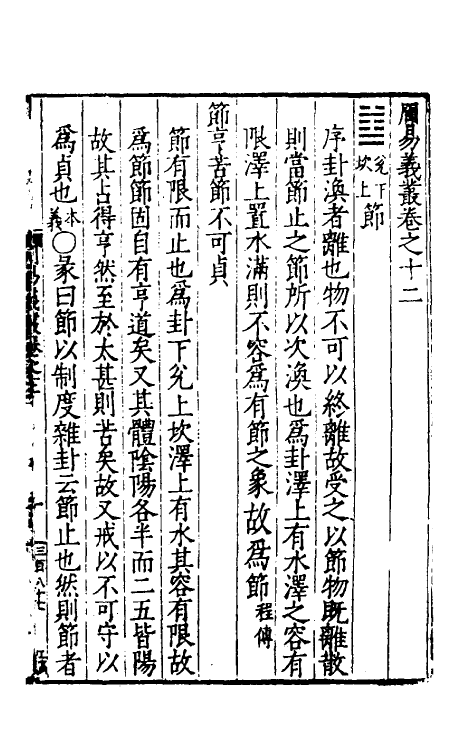 周易義叢卷之十二
兌下
坎上 節
序卦渙者離也物不可以終離故受之以節物旣離散
則當節止之節所以次渙也爲卦澤上有水澤之容有
限澤上置水滿則不容爲有節之象故爲節程傳
節亨苦節不可貞
節有限而止也爲卦下兌上坎澤上有水其容有限故
爲節節固自有亨道矣又其體陰陽各半而二五皆陽
故其占得亨然至於太甚則苦矣故又戒以不可守以
爲貞也本義○彖曰節以制度雜卦云節止也然則節者
三百八十七